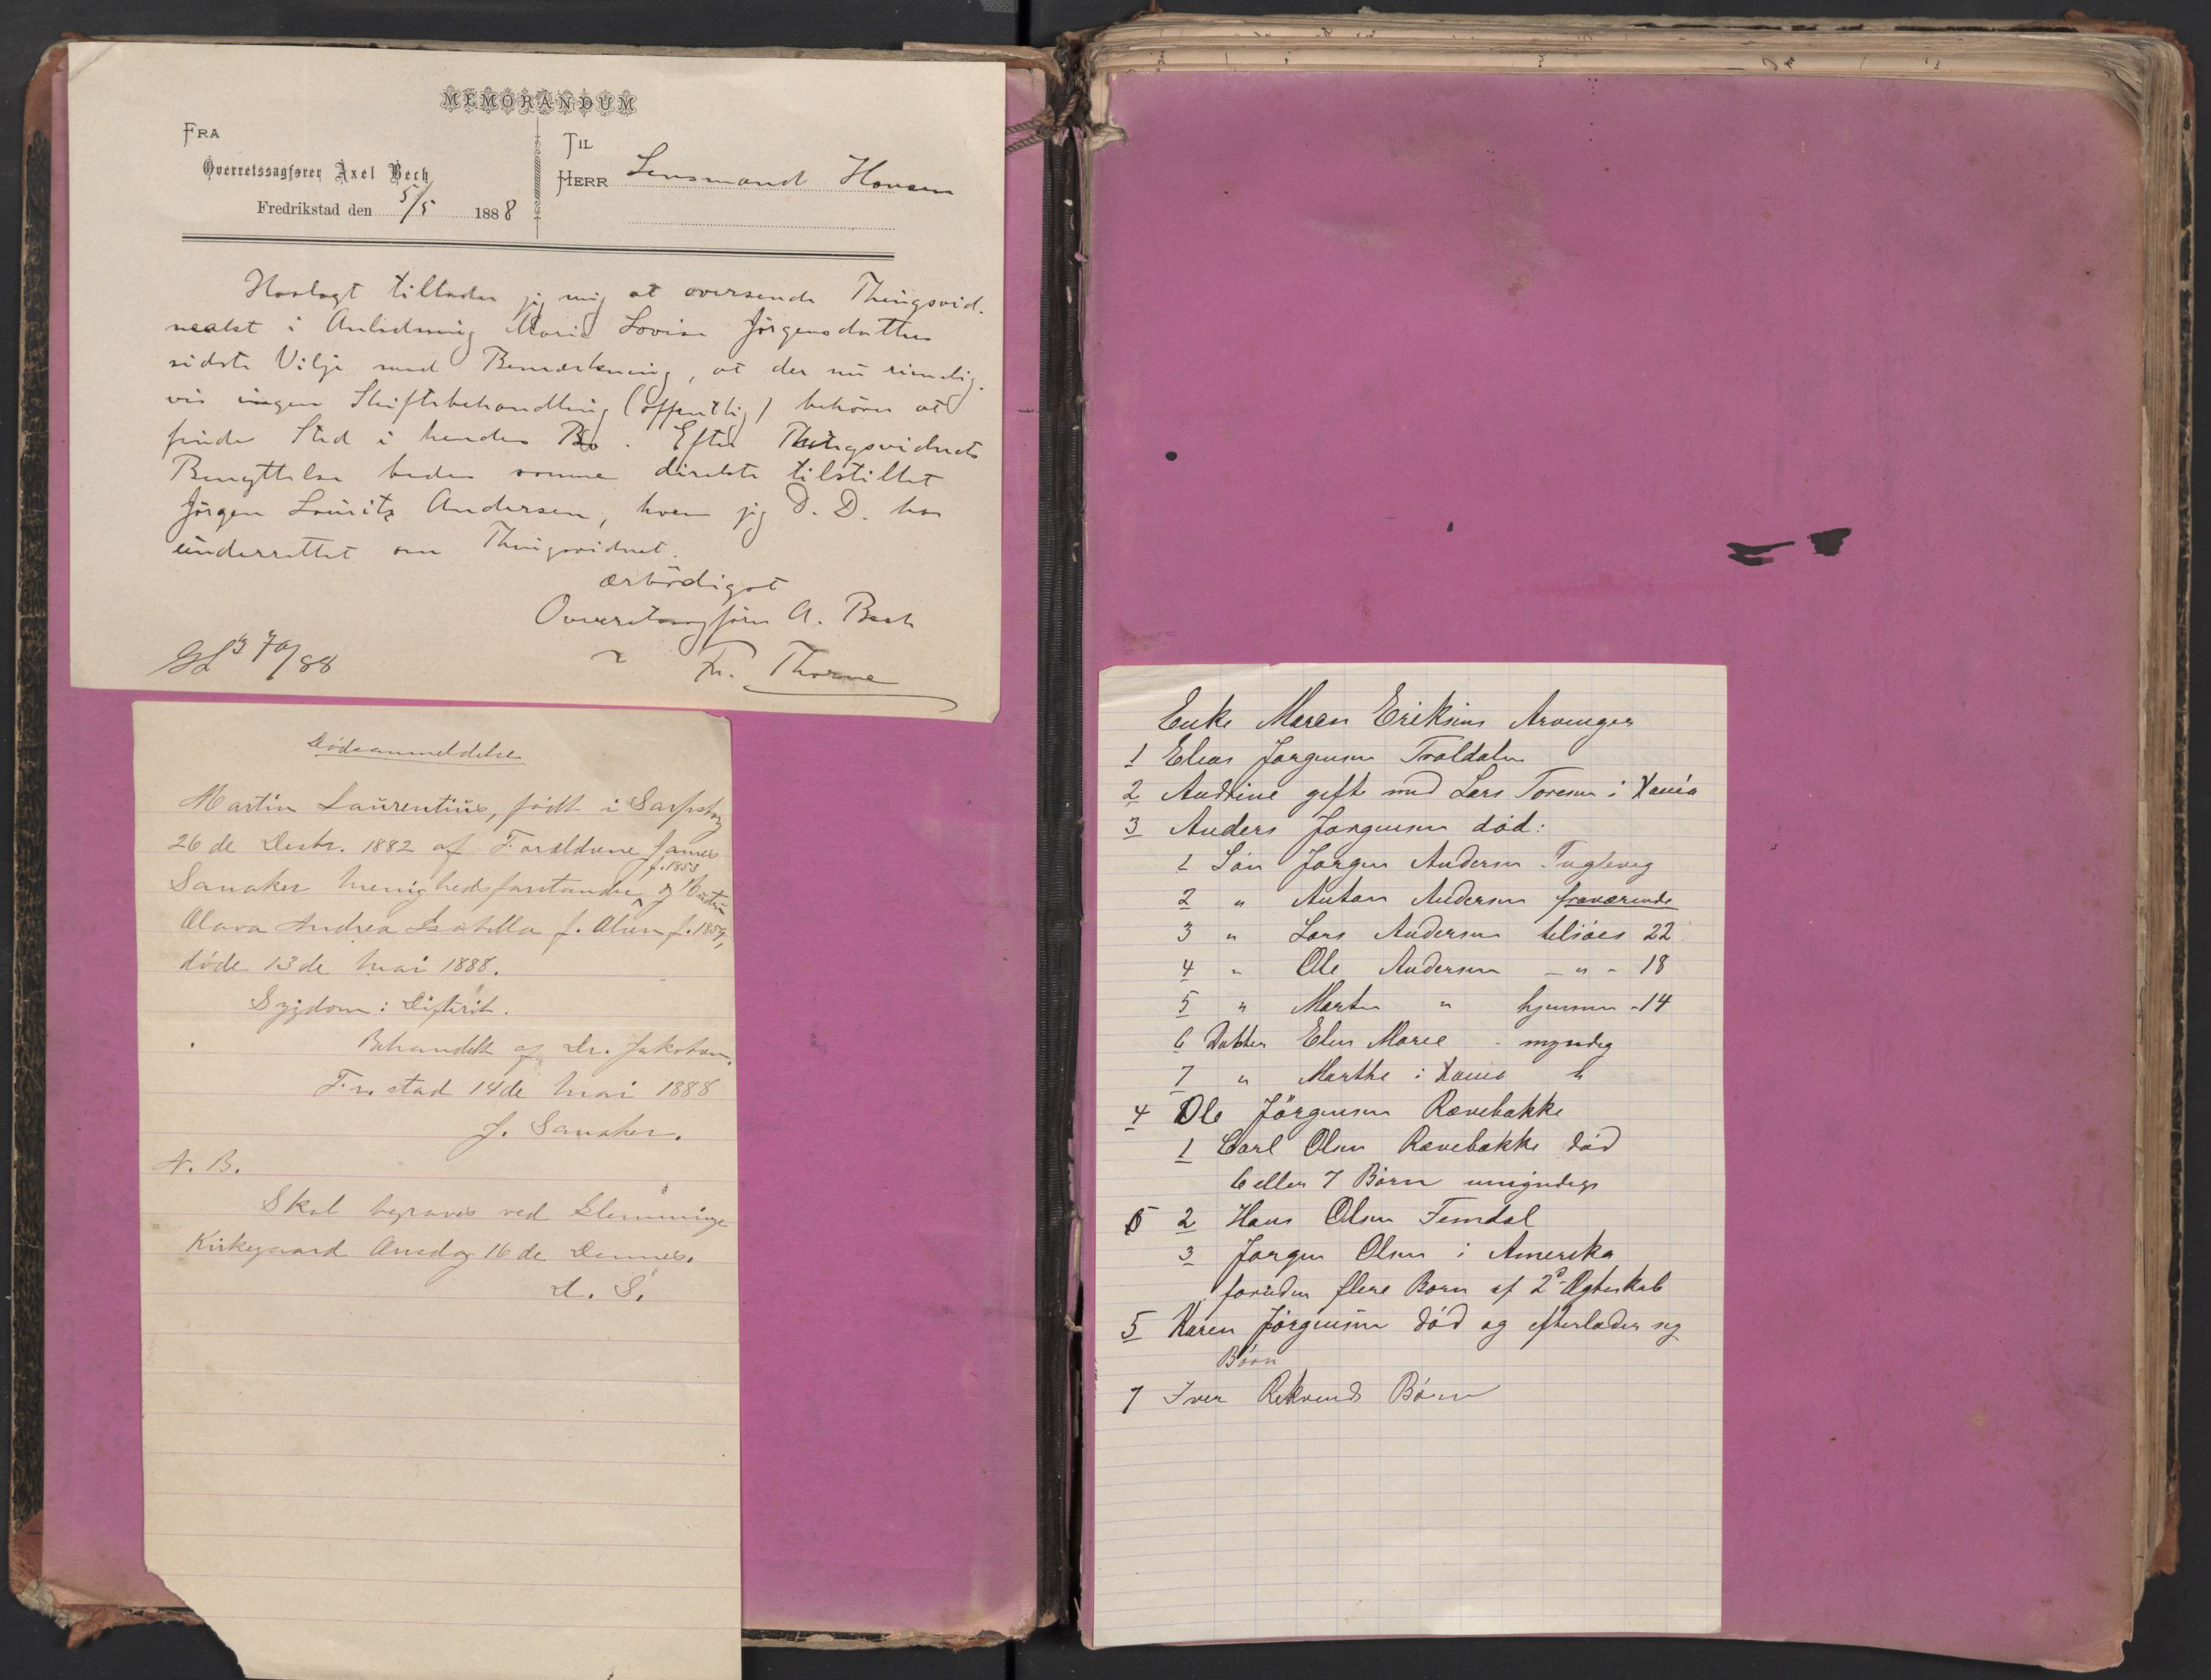 MEMORANDUM
FRA
Overretssagfører Axel Bech
Fredrikstad den 5/5 1888
TIL
HERR Lensmand Hansen
Hoslagt tillader jeg mig at oversende Thingsvid-
neakt i Anledning Maria Lovise Jörgensdatters
sidste Vilje med Bemærkning, at der nu rimelig-
vis ingen Skiftebehandling (offentlig) behöver at
finde Sted i hendes Bo. Efter Thingsvidnets
Benyttelse bedes samme direkte tilstillet
Jörgen Lauritz Andersen, hvem jeg D. D. har
underrettet om Thingsvidnet.
ærbödigst
Overretssagförer A. Bech
Fr. Thorne
/88
Dødsanmeldelse
Martin Laurentius, født i Sarpsborg
26 de Desbr. 1882 af Forældrene James
f. 1853
Sanaker menighedsforstander, og Hustru
Olava Andrea Isabella f. Olsen f. 1857,
døde 13 de Mai 1888.
Sygdom: Difterit.
Behandlet af Dr. Jakobsen.
Fr.stad 14 de Mai 1888
J. Sanaker.
N. B.
Skal begraves ved Glemminge
Kirkegaard Onsdag 16 de Dennes.
D. S.
Enke Maren Eriksens Arvinger
1 Elias Jørgensen Troldalen
2 Andrine gift med Lars Toresen i Xania
3 Anders Jørgensen død:
1 Søn Jørgen Andersen Teglverg
2 " Anton Andersen fraværende
3 " Lars Andersen tilsøes 22
4 " Ole Andersen - " - 18
5 " Martin " hjemme - 14
6 Datter Elen Marie - myndig
7 " Marthe i Xania "
4 Ole Jörgensen Rævebakke
1 Carl Olsen Rævebakke død
6 eller 7 Børn umyndige
2 Hans Olsen Femdal
3 Jørgen Olsen i Amerika
foruden flere Børn af 2d Ægteskab
5 Karen Jörgensen død og efterlader sig
Børn
7 Iver Rekvends Børn